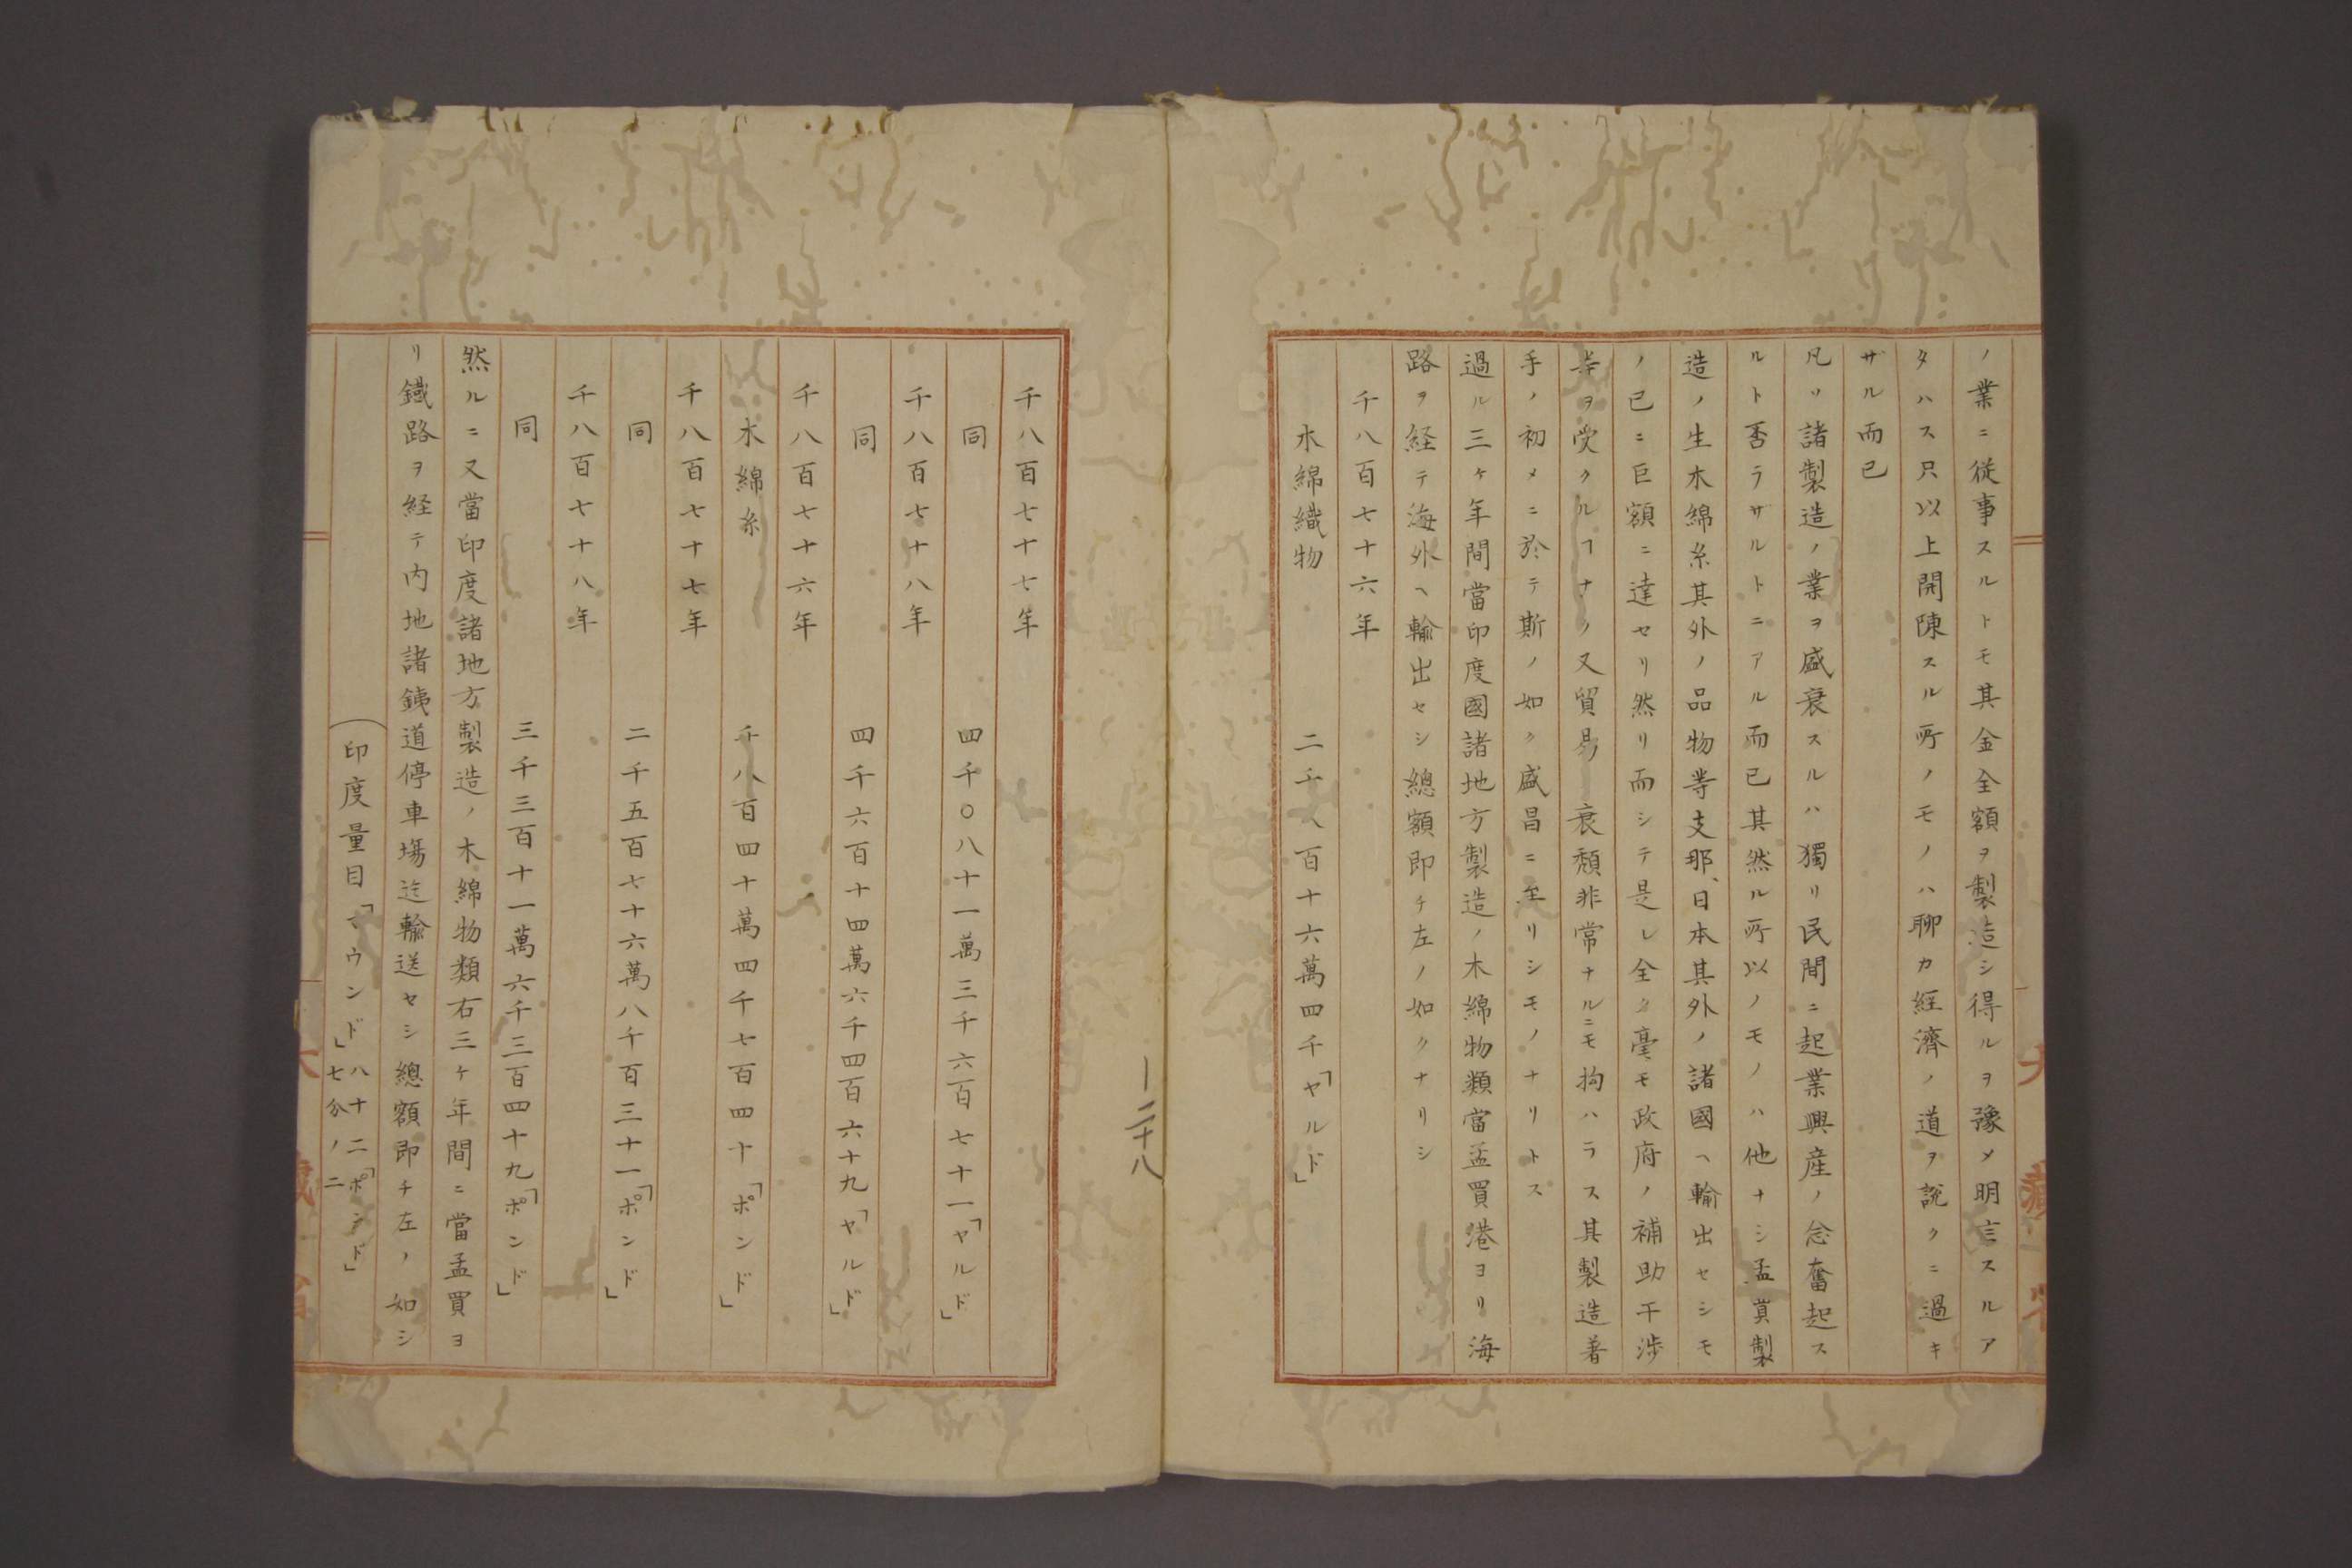 ノ業ニ従事スルトモ其金全額ヲ製造シ得ルヲ豫メ明言スルア
タハス只以上開陳スル所ノモノハ聊カ経濟ノ道ヲ説クニ過キ
ザル而已
凡ソ諸製造ノ業ヲ盛衰スルハ獨リ民間ニ起業興産ノ念奮起ス
ルト否ラザルトニアル而已其然ル所以ノモノハ他ナシ孟買製
造ノ生木綿糸其外ノ品物等支那、日本其外ノ諸國ヘ輸出セシモ
ノ已ニ巨額ニ達セリ然リ而シテ是レ全ク毫モ政府ノ補助干渉
等ヲ受クルヿナク又貿易衰頽非常ナルニモ拘ハラス其製造著
手ノ初メニ於テ斯ノ如ク盛昌ニ至リシモノナリトス
過ル三ヶ年間當印度國諸地方製造ノ木綿物類當孟買港ヨリ海
路ヲ経テ海外ヘ輸出セシ總額即チ左ノ如クナリシ
千八百七十六年
木綿織物 二千八百十六萬四千「ヤルド」
二十八
千八百七十七年
同 四千〇八十一萬三千六百七十一「ヤルド」
千八百七十八年
同 四千六百十四萬六千四百六十九「ヤルド」
千八百七十六年
木綿糸 千八百四十萬四千七百四十「ポンド」
千八百七十七年
同 二千五百七十六萬八千百三十一「ポンド」
千八百七十八年
同 三千三百十一萬六千三百四十九「ポンド」
然ルニ又當印度諸地方製造ノ木綿物類右三ヶ年間ニ當孟買ヨ
リ鐵路ヲ経テ内地諸銕道停車場迄輸送セシ總額即チ左ノ如シ
(印度量目「マウンド」八十二「ポンド」
七分ノ二